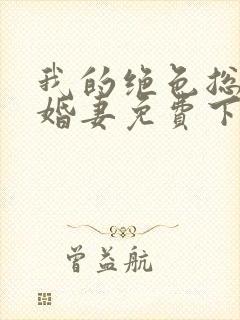 我的绝色总
婚妻免費下
曾益航